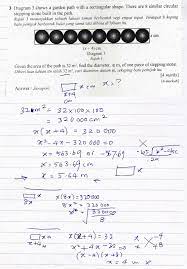 3 Diagram 3 shows a garden path with a rectangular shape. There are 8 similar circular
stepping stone built in the path.
Rajah 3 menunjukkan sebuah laluan taman berbentuk segi empat tepat. Terdapat 8 keping
batu pemijak berbentuk bulat yang sama saiz dibina di laluan itu.
x cm
(x + 4) cm
Diagram 3
Rajah 3
Given the area of the path is 32 m², find the diameter, in m, of one piece of stepping stone.
Diberi luas laluan itu ialah 32 m², cari diameter dalam m, sekeping batu pemijak itu.
[4 marks]
[4 markah]
Answer / Jawapan:
x cm x ?
x+4
cm
32cm² = 32 x 100 x 100
= 320 000 cm²
x (x + 4) = 320 000
x² + 4x - 320000 = 0
x = 563.69 or -567.69
x = 563.69 cm
x = 5.64 m
x (8x) = 320000
8x
8x² = 320000
x = √320000
8
x (x+4) = 32
x+4
x² + 4x - 32 = 0
x -4
x 8
x = 4 m